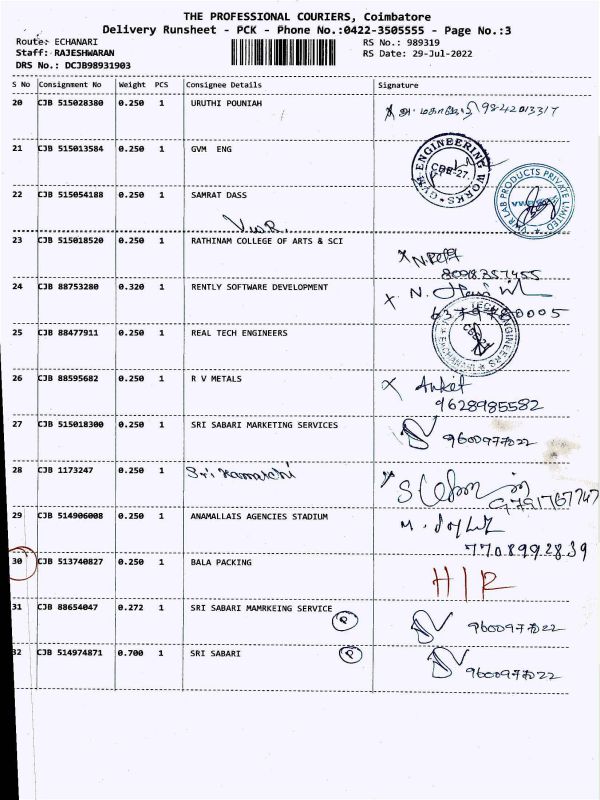 THE PROFESSIONAL COURIERS, Coimbatore
Delivery Runsheet - PCK - Phone No.:0422-3505555 - Page No.:3
Route: ECHANARI
RS No.: 989319
Staff: RAJESHWARAN
RS Date: 29-Jul-2022
DRS No.: DCJB98931903
S No Consignment No Weight PCS Consignee Details Signature
20 CJB 515028380 0.250 1 URUTHI POUNIAH 9842013317
21 CJB 515013584 0.250 1 GVM ENG
GVM ENGINEERING WORKS
22 CJB 515054188 0.250 1 SAMRAT DASS
VWR LAB PRODUCTS PRIVATE LIMITED
23 CJB 515018520 0.250 1 RATHINAM COLLEGE OF ARTS & SCI
8098357455
24 CJB 88753280 0.320 1 RENTLY SOFTWARE DEVELOPMENT
25 CJB 88477911 0.250 1 REAL TECH ENGINEERS
26 CJB 88595682 0.250 1 R V METALS Ankit
9628985582
27 CJB 515018300 0.250 1 SRI SABARI MARKETING SERVICES
9600977022
28 CJB 1173247 0.250 1 Sri Kamatchi
9791767747
29 CJB 514906008 0.250 1 ANAMALLAIS AGENCIES STADIUM
7708992839
30 CJB 513740827 0.250 1 BALA PACKING
31 CJB 88654047 0.272 1 SRI SABARI MAMRKEING SERVICE
P 9600977022
32 CJB 514974871 0.700 1 SRI SABARI P
9600977022